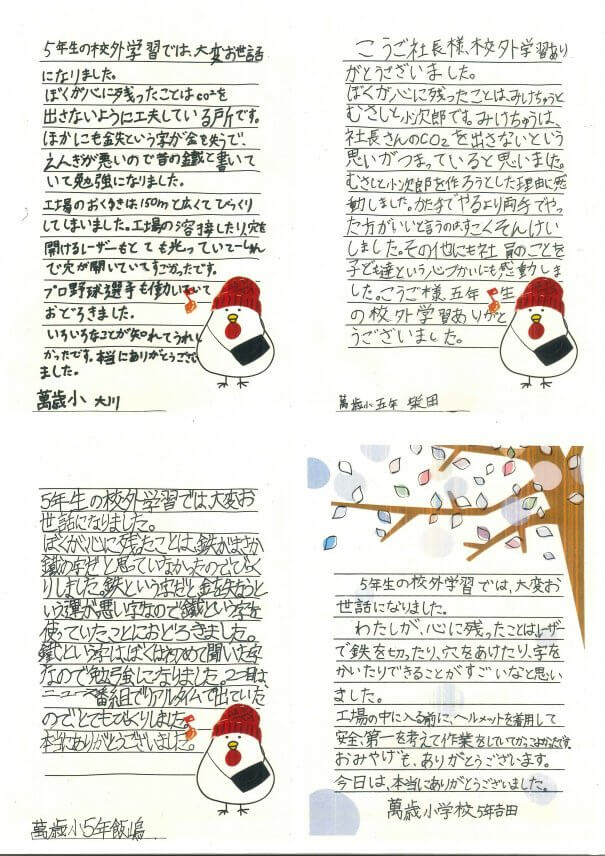 5年生の校外学習では、大変お世話
になりました。
ぼくが心に残ったことはco²を
出さないように工夫している所です。
ほかにも鉄という字が金を失うで、
えんぎが悪いので昔の鐵と書いて
いて勉強になりました。
工場のおくゆきは150mと広くてびっくり
してしまいました。工場の溶接したり、穴を
開けるレーザーもとても光っていて一しゅん
で穴が開いていてすごかったです。
プロ野球選手も働いていて
おどろきました。
いろいろなことが知れてうれし
かったです。本当にありがとうござい
ました。
萬歳小 大川
こうご社長様、校外学習あり
がとうございました。
ぼくが心に残ったことは、みけちゅうと
むさしと小次郎です。みけちゅうは、
社長さんのCO2を出さないという
思いがつまっていると思いました。
むさしと小次郎を作ろうとした理由に感
動しました。かた手でやるより両手でやっ
た方がいいと言うのはすごくそんけい
しました。その他にも社員のことを
子ども達という心づかいにも感動しま
した。こうご様五年生
の校外学習ありがと
うございました。
萬歳小五年 柴田
5年生の校外学習では、大変お
世話になりました。
ぼくが心に残ったことは、鉄がまさか
鐵の字だと思っていなかったのでびっく
りしました。鉄という字だと金を失うと
いう運が悪い字なので鐵という字を
使っていたことにおどろきました。
鐵という字は、ぼくは初めて聞いた字
なので勉強になりました。2つ目は、
ニュース番組でリアルタイムで出ていた
のでとてもびっくりしました。
本当にありがとうございました。
萬歳小5年飯嶋
5年生の校外学習では、大変お
世話になりました。
わたしが、心に残ったことはレーザー
で鉄を切ったり、穴をあけたり、字を
かいたりできることがすごいなと思い
ました。
工場の中に入る前に、ヘルメットを着用して
安全、第一を考えて作業をしていてかっこよかったです。
おみやげも、ありがとうございます。
今日は、本当にありがとうございました。
萬歳小学校5年吉田